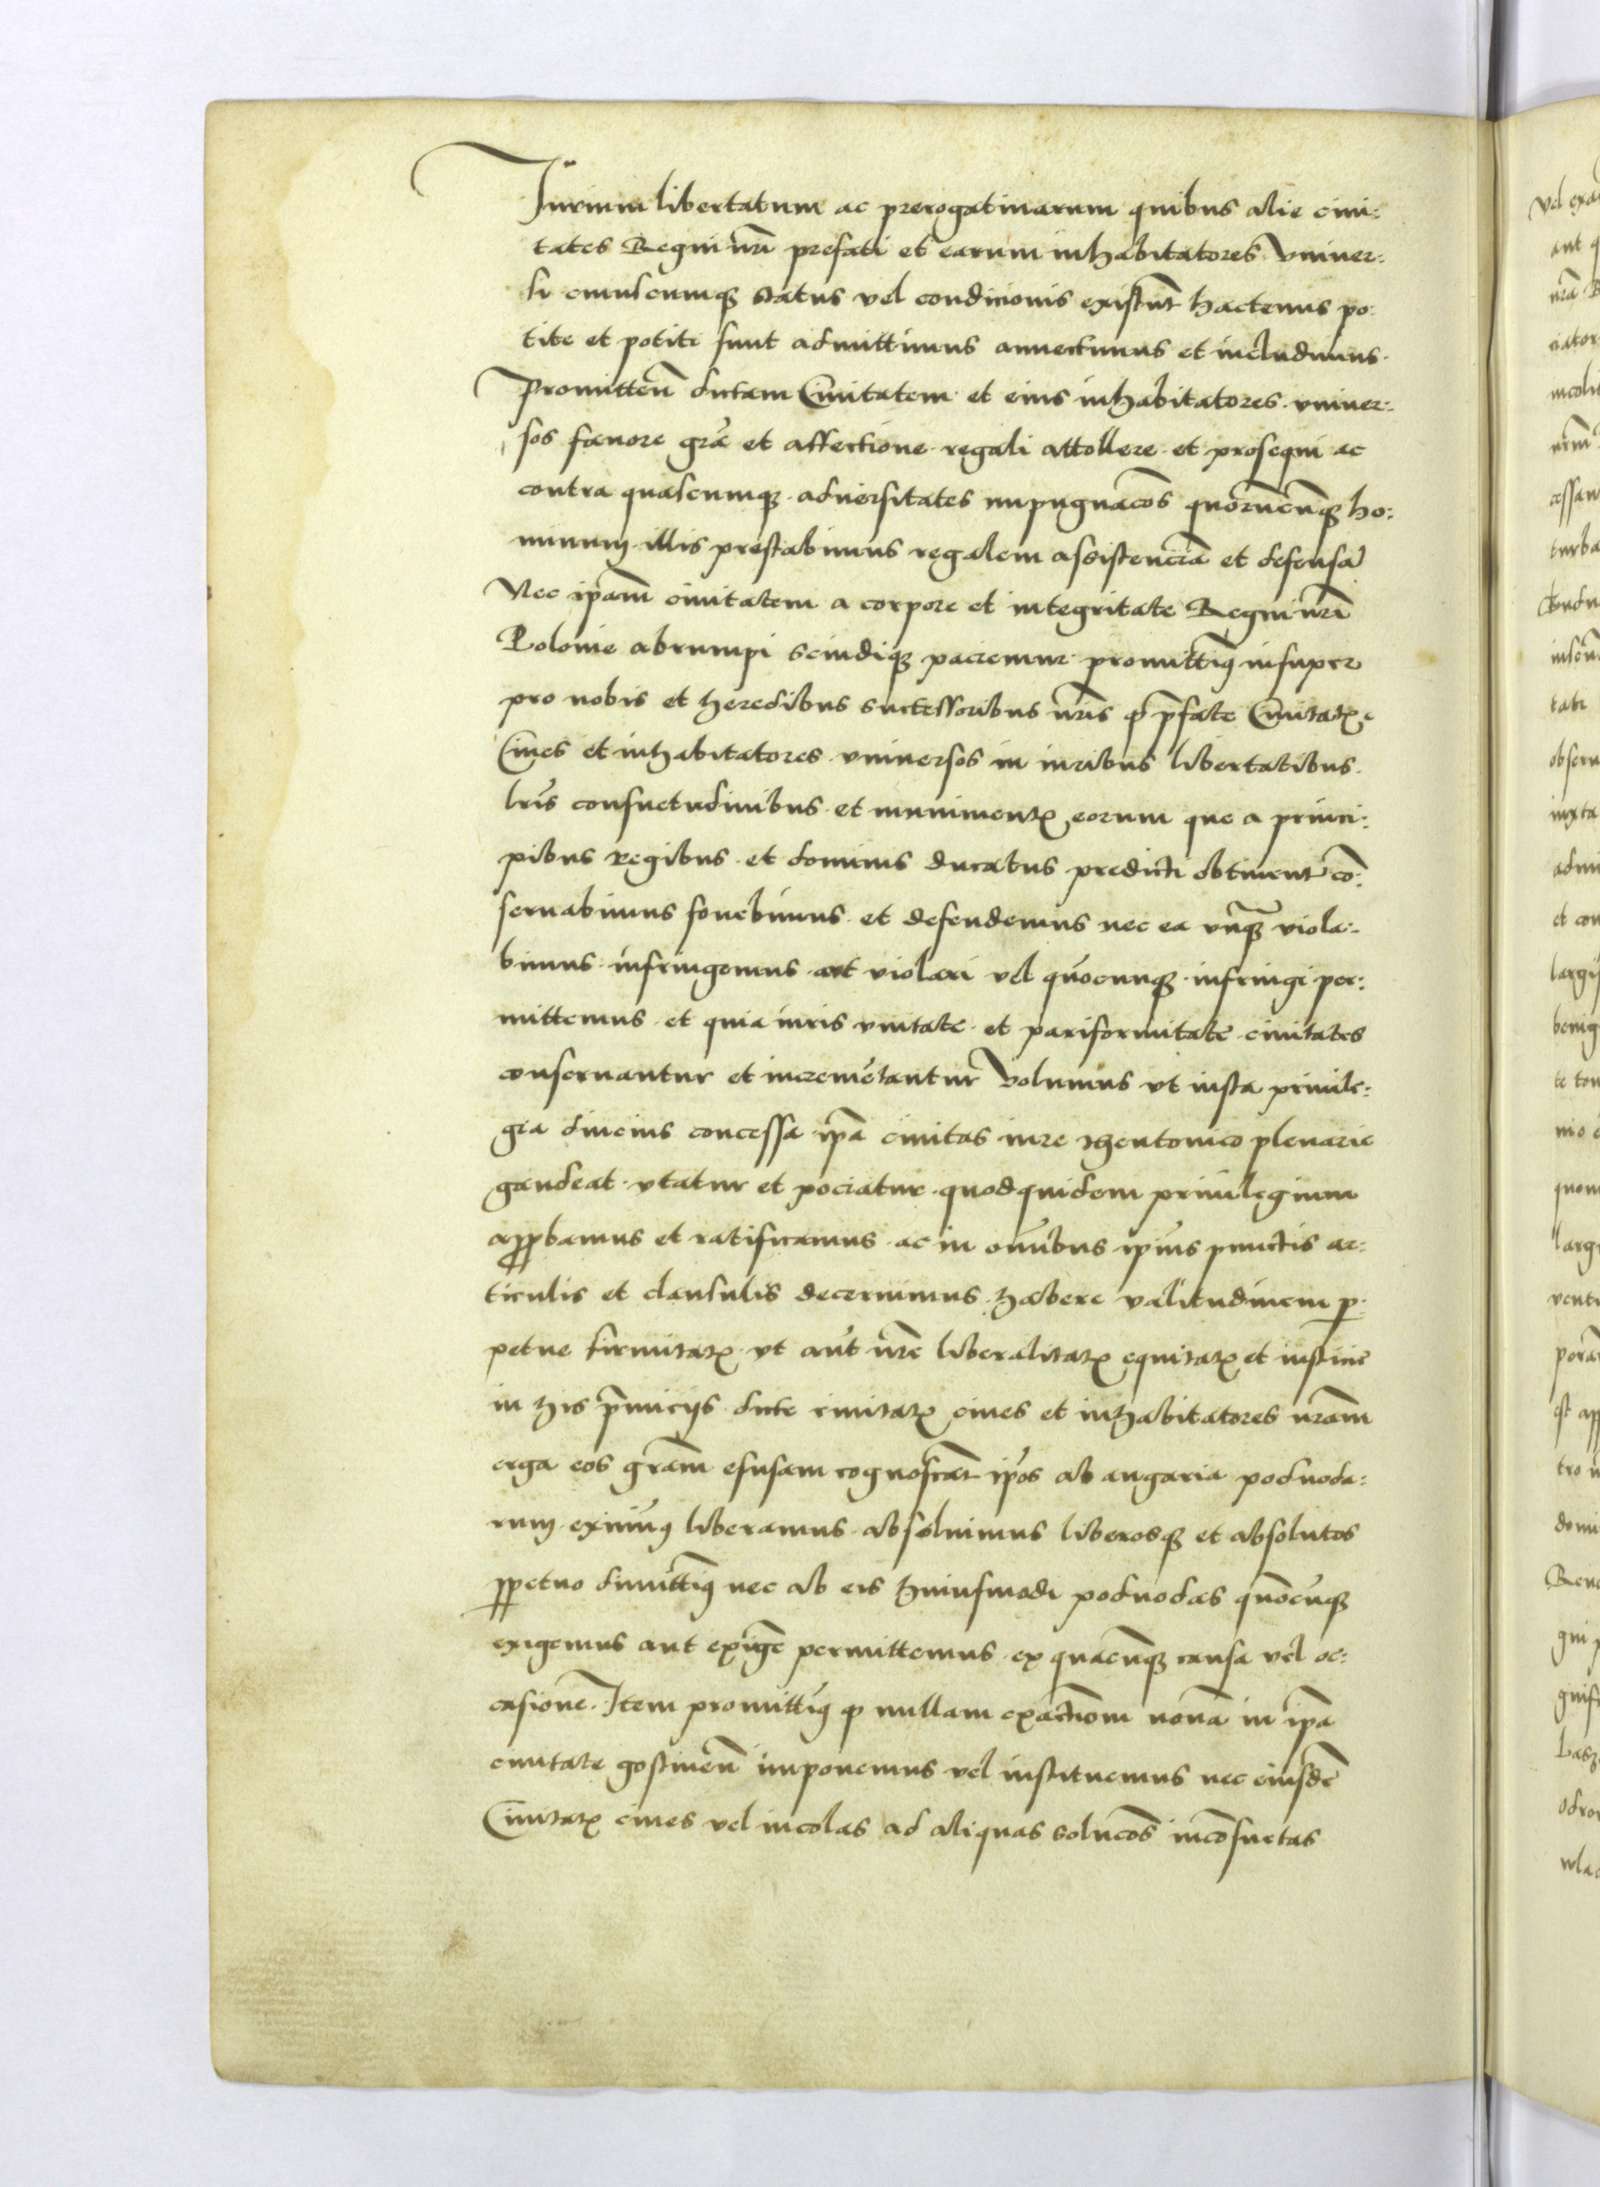 Jurium libertatum ac prerogatiuarum quibus alie ciui:
tates Regni nr̃i prefati et earum inhabitatores vniuer:
si cuiuscumqꝫ status vel condicionis existũt hactenus po:
tite et potiti sunt admittimus annectimus et includimus.
Promitteñ dictam Ciuitatem et eius inhabitatores vniuer:
sos fauore grã et affectione regali attollere et prosequi ac
contra quascumqꝫ aduersitates inpugnac̃oẽs quorũcũqꝫ ho:
minum illis prestabimus regalem assistenciã et defensã
Nec ip̃am ciuitatem a corpore et integritate Regni nr̃i
Polonie abrumpi scindiqꝫ paciemur promittimꝰ insuper
pro nobis et heredibus successoribus nr̃is ꝙ p̃fate Ciuitatꝭ
Ciues et inhabitatores vniuersos in iuribus libertatibus
lr̃is consuetudinibus et munimentꝭ eorum que a princi:
pibus regibus et dominis ducatus predicti obtinent cõ:
seruabimus fouebimus et defendemus nec ea vnqꝫ viola:
bimus infringemus aut violari vel quocunqꝫ infringi per:
mittemus et quia iuris vnitate et pariformitate ciuitates
conseruantur et incremẽtantur Volumus vt iusta priuile:
gia diucius concessa ip̃a ciuitas iure thentonico plenarie
gaudeat vtatur et pociatur quodquidem priuilegium
approbamus et ratificamus ac in om̃ibus ip̃ius punctis ar:
ticulis et clausulis decernimus habere valitudinem ꝑ
petue firmitatꝭ vt aut̃ nr̃e liberalitatꝭ equitatꝭ et iusticie
in his p̃miciis dicte ciuitatꝭ ciues et inhabitatores nr̃am
erga eos gr̃am efusam cognoscãt ip̃os ab angaria poduoda:
rum eximimꝰ liberamus absoluimus liberosqꝫ et absolutos
ꝑpetuo dimittimꝰ nec ab eis huiusmodi poduodas quocũqꝫ
exigemus aut exigẽ permittemus ex quacũqꝫ causa vel oc:
casione. Item promittimꝰ ꝙ nullam exactiom nouã in ip̃a
ciuitate gostineñ imponemus vel instituemus nec eiusdẽ
Ciuitatꝭ ciues vel incolas ad aliquas soluc̃oẽs incõsuetas